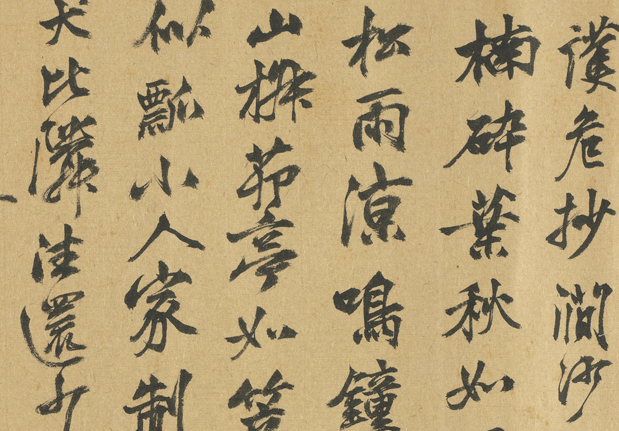 危抄澗沙
楠碎葉秋如
松雨涼鳴鐘
山椒茆亭如
似瓢小人家制
犬比隣往還少